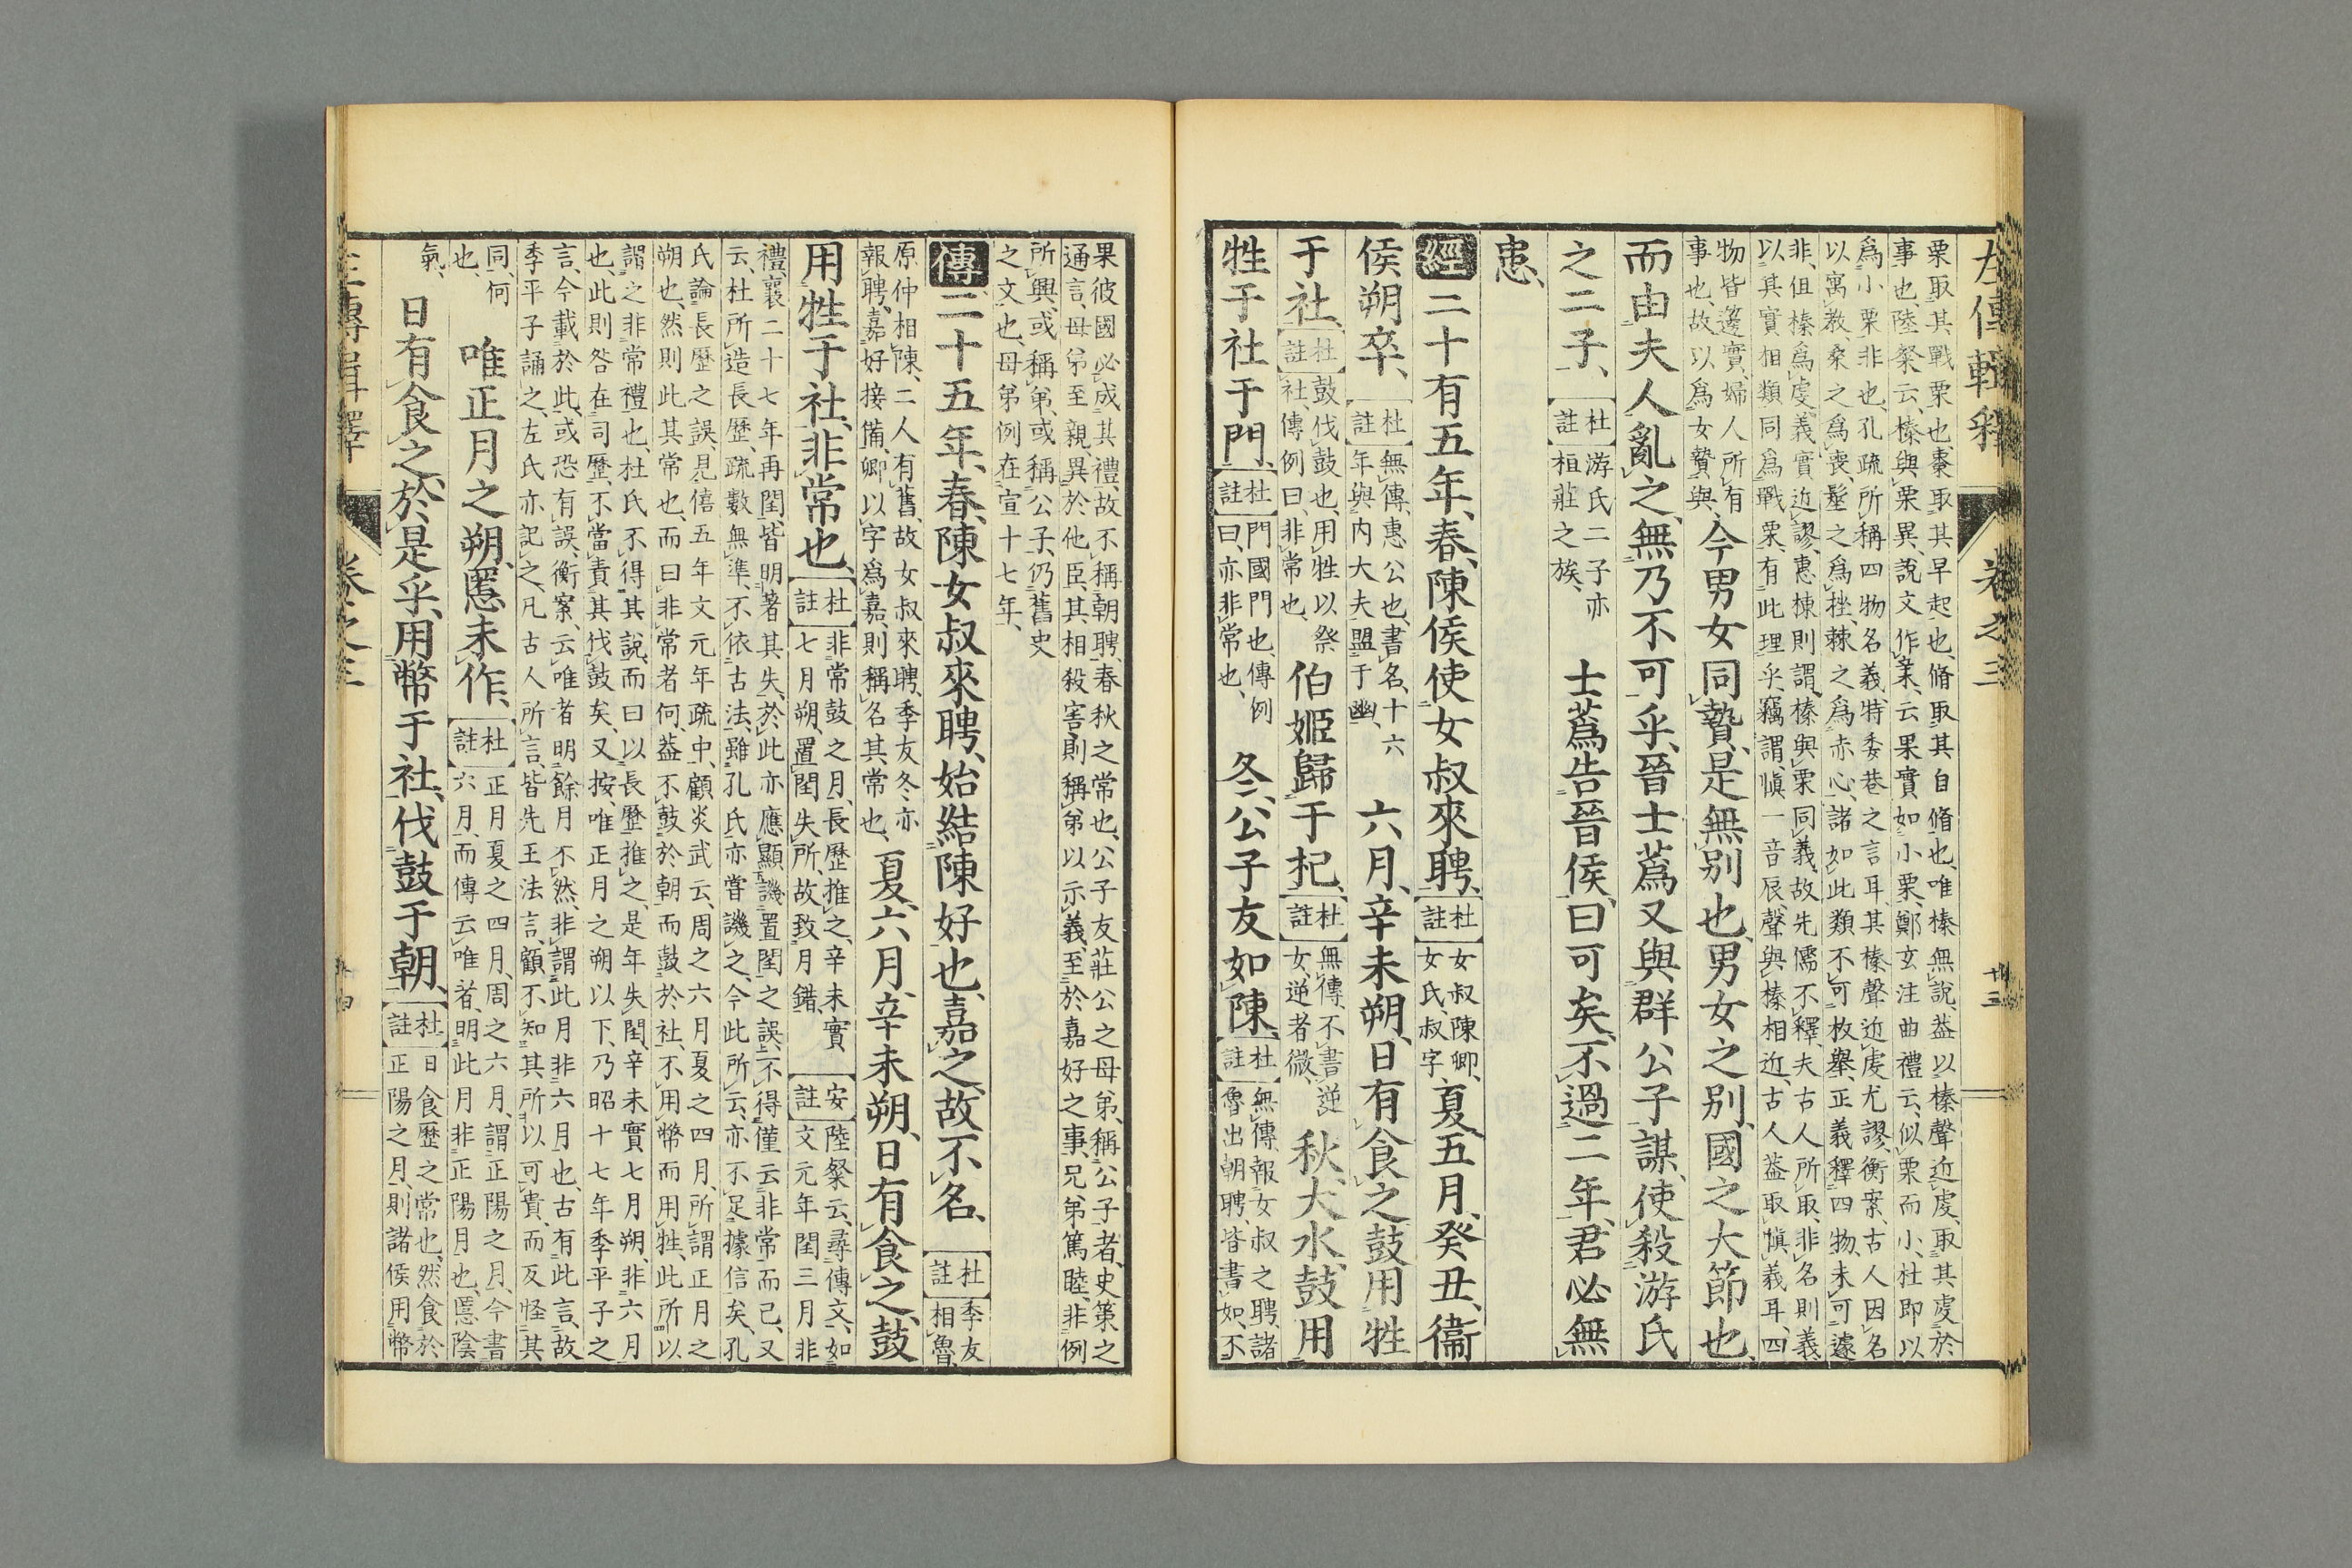 左傳輯釋
卷之三
廿三
栗取其戰栗也、棗取其早起也、脩取其自脩也、唯榛無說、蓋以榛聲近虔、取其虔於
事也、陸粲云、榛與栗異、說文作亲、云果實如小栗、鄭玄注曲禮云、似栗而小、杜即以
爲小栗非也、孔疏所稱四物名義、特委巷之言耳、其榛聲近虔尤謬、衡案、古人因名
以寓教、桑之爲喪、髽之爲挫、棘之爲赤心、諸如此類不可枚舉、正義釋四物、未可遽
非、但榛爲虔義實近謬、惠棟則謂、榛與栗同義、故先儒不釋、夫古人所取、非名則義
以其實相類同爲戰栗、有此理乎、竊謂、愼一音辰、聲與榛相近、古人蓋取愼義耳、四
物皆籩實、婦人所有
事也、故以爲女贄與、
今男女同贄、是無別也、男女之別、國之大節也、
而由夫人亂之、無乃不可乎、晉士蔿又與群公子謀、使殺游氏
之二子、
杜註
游氏二子亦
桓莊之族、
士蔿告晉侯、曰可矣、不過二年、君必無
患、
經二十有五年、春、陳侯使女叔來聘、
杜註
女叔陳卿、
女氏、叔字
夏、五月、癸丑、衞
侯朔卒、
杜註
無傳、惠公也、書名、十六
年與内大夫盟于幽、
六月、辛未朔、日有食之、鼓用牲
于社、
杜註
鼓伐鼓也、用牲以祭
社、傳例曰、非常也、
伯姬歸于杞、
杜註
無傳、不書逆
女、逆者微、
秋、大水、鼓用
牲于社于門、
杜註
門國門也、傳例
曰、亦非常也、
冬、公子友如陳、
杜註
無傳、報女叔之聘、諸
魯出朝聘、皆書如、不
果彼國必成其禮、故不稱朝聘、春秋之常也、公子友莊公之母弟、稱公子者、史策之
通言、母弟至親、異於他臣、其相殺害則稱弟以示義、至於嘉好之事、兄弟篤睦、非例
所興、或稱弟、或稱公子、仍舊史
之文也、母弟例在宣十七年、
傳二十五年、春、陳女叔來聘、始結陳好也、嘉之、故不名、
杜註
季友
相魯、
原仲相陳、二人有舊、故女叔來聘、季友冬亦
報聘、嘉好接備、卿以字爲嘉、則稱名其常也、
夏、六月、辛未朔、日有食之、鼓
用牲于社、非常也、
杜註
非常鼓之月、長歷推之、辛未實
七月朔、置閏失所、故致月錯、
安註
陸粲云、尋傳文、如
文元年閏三月非
禮、襄二十七年再閏、皆明著其失、於此亦應顯譏置閏之誤、不得僅云非常而已、又
云、杜所造長歷、疏數無準、不依古法、雖孔氏亦嘗譏之、今此所云、亦不足據信矣、孔
氏論長歷之誤、見僖五年文元年疏中、顧炎武云、周之六月夏之四月、所謂正月之
朔也、然則此其常也、而曰非常者何、蓋不鼓於朝而鼓於社、不用幣而用牲、此所以
謂之非常禮也、杜氏不得其說、而曰以長歷推之、是年失閏、辛未實七月朔、非六月
也、此則咎在司歷、不當責其伐鼓矣、又按、唯正月之朔以下、乃昭十七年季平子之
言、今載於此、或恐有誤、衡案、云唯者明餘月不然、非謂此月非六月也、古有此言、故
季平子誦之、左氏亦記之、凡古人所言、皆先王法言、顧不知其所以可貴、而反怪其
同、何
也、
唯正月之朔、慝未作、
杜註
正月夏之四月、周之六月、謂正陽之月、今書
六月、而傳云唯者、明此月非正陽月也、慝陰
氣、
日有食之、於是乎、用幣于社、伐鼓于朝、
杜註
日食歷之常也、然食於
正陽之月、則諸侯用幣
左傳輯釋
卷之三